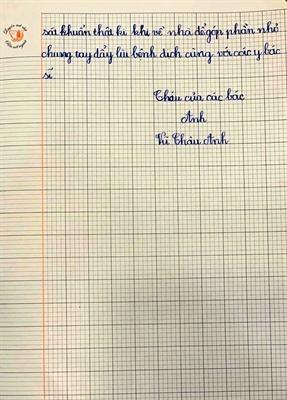 sát khuẩn thật kĩ khi về nhà để góp phần nhỏ
chung tay đẩy lùi bệnh dịch cùng với các y bác
sĩ
Cháu của các bác
Anh
Vũ Châu Anh